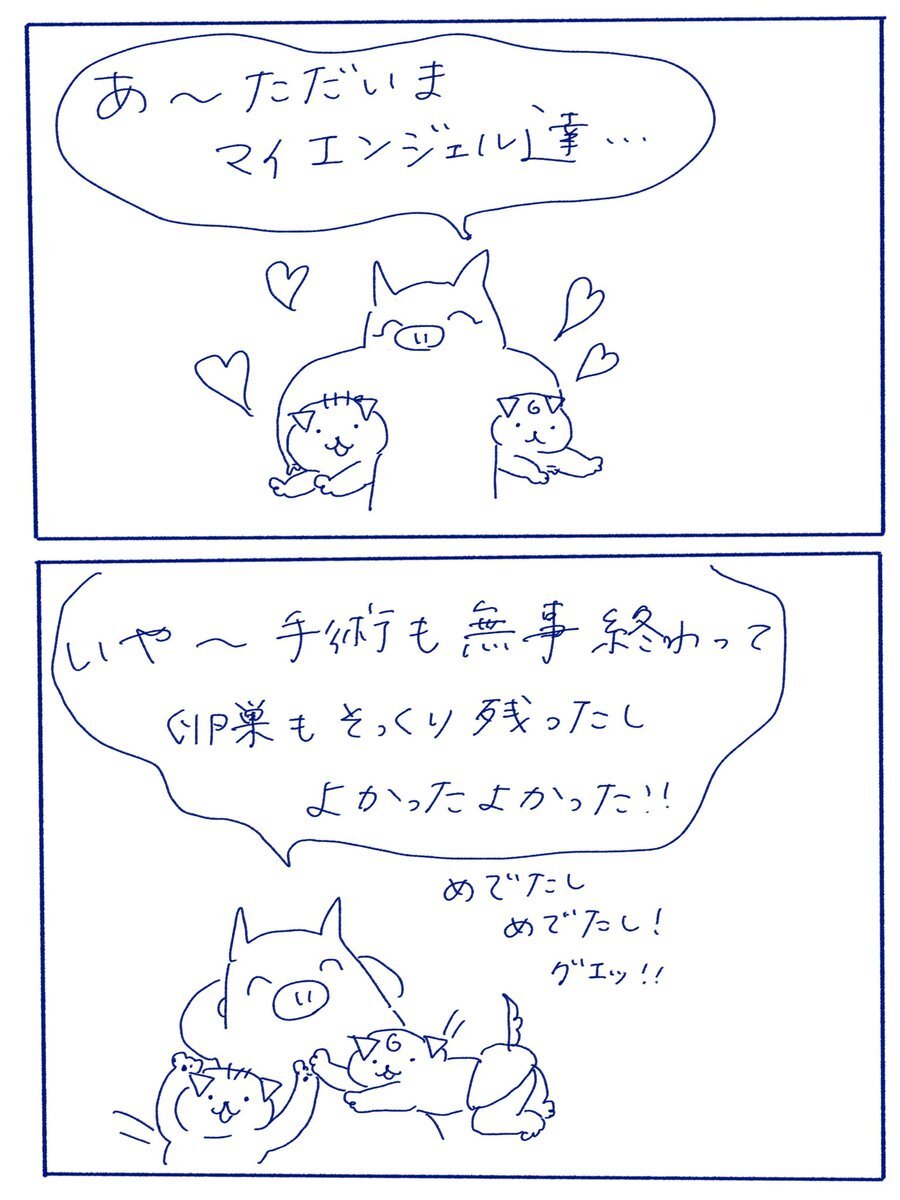 あ～ただいま
マイエンジェル達…
いや～手術も無事終わって
卵巣もそっくり残ったし
よかったよかった!!
めでたし
めでたし!
グエッ!!